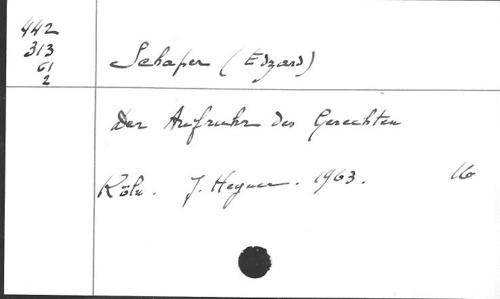 442
313
61
2
Schaper (Edzard)
Der Aufruhr des Gerechten
Köln. J. Hegner. 1963. 16